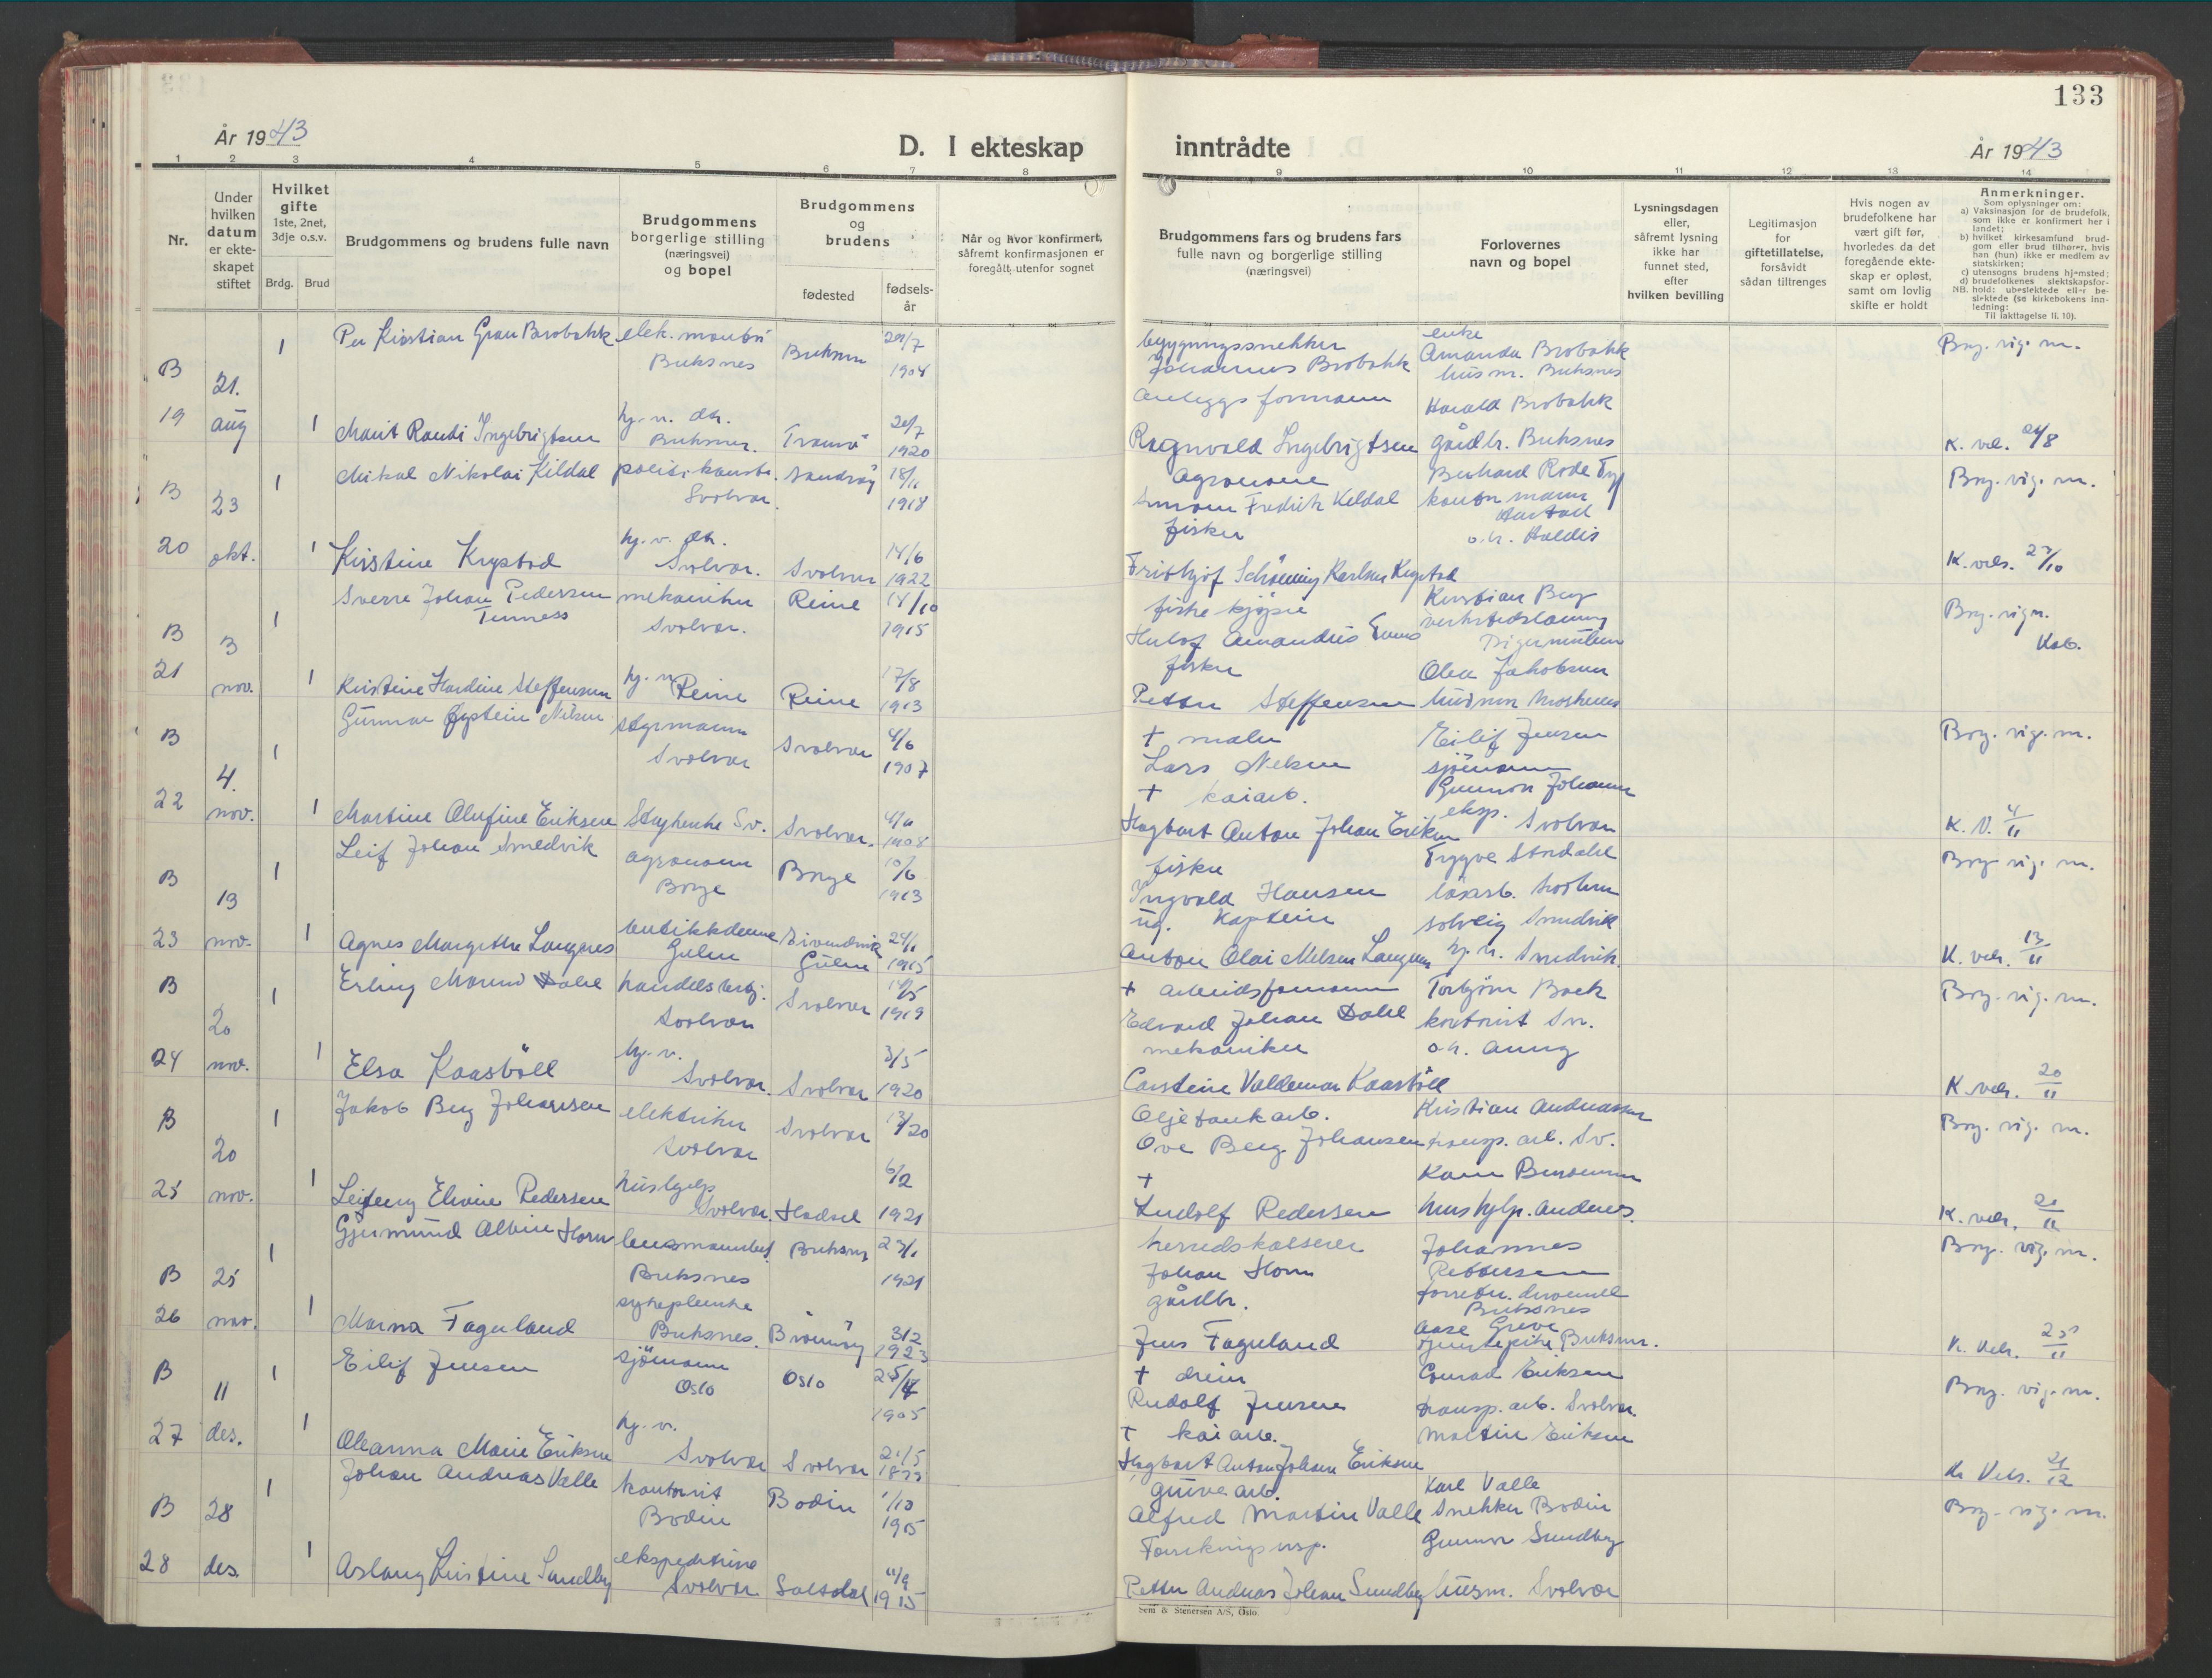 133
År 1943
D. I ekteskap inntrådte
År 1943
1 2 3 4 5 6 7 8 9 10 11 12 13 14
Nr.
Under hvilken datum er ekteskapet stiftet
Hvilket gifte
1ste, 2net, 3dje o.s.v.
Brdg. Brud
Brudgommens og brudens fulle navn
Brudgommens borgerlige stilling (næringsvei) og bopel
Brudgommens og brudens
fødested
fødselsår
Når og hvor konfirmert, såfremt konfirmasjonen er foregått utenfor sognet
Brudgommens fars og brudens fars fulle navn og borgerlige stilling (næringsvei)
Forlovernes navn og bopel
Lysningsdagen eller, såfremt lysning ikke har funnet sted, efter hvilken bevilling
Legitimasjon for giftetillatelse, forsåvidt sådan tiltrenges
Hvis nogen av brudefolkene har vært gift før, hvorledes da det foregående ekteskap er opløst, samt om lovlig skifte er holdt
Anmerkninger.
Som oplysninger om:
a) Vaksinasjon for de brudefolk, som ikke er konfirmert her i landet;
b) hvilket kirkesamfund brudgom eller brud tilhører, hvis han (hun) ikke er medlem av statskirken;
c) utensogns brudens hjemsted;
d) brudefolkenes slektskapsforhold: ubeslektede eller beslektede (se kirkebokens innledning:
NB. Til iakttagelse II. 10).
B 21. 1 Per Kristian Grau Brobakk elek. montør Buksnes Buksnes 29/7 1904
byggningssnekker Johannes Brobakk
enke Amanda Brobakk husm. Buksnes
Borg. vig. m.
19 aug 1 Marit Randi Ingebrigtsen hj. v. dtr. Buksnes Tromsö 20/7 1920
Anleggsformann Ragnvald Ingebrigtsen
Harald Brobakk gårdbr. Buksnes
K. vel. 24/8
B 23 1 Mikal Nikolai Kildal politikonst. Svolvær Sandsøy 18/11 1918
Agronom Simon Fredrik Kildal
Borg. vig. m.
20 okt. 1 Kirstine Krystad hj. v. dtr. Svolvær. Svolvær 14/6 1922
fisker Frithjof Schöning Karlsen Krystad
o.h. Haldis
K. vels. 23/10
B 3 1 Sverre Johan Pedersen Tunness mekaniker Svolvær. Reine 14/10 1915
fiskekjøper
Kristian Berg Digermulen
Borg. vig m.
21 nov. 1 Kristine Hardine Steffensen hj. v. Reine Reine 17/8 1913
fisker Petter Steffensen
Olea Jakobsen
B 4. 1 Gunnar Øystein Nilsen styrmann Svolvær Svolvær 4/6 1907
+ maler Lars Nilsen
Eilif Jensen sjömann
Borg. vig. m.
22 nov. 1 Martine Olufine Eriksen Sv. Svolvær. 4/11 1908
+ kaiarb. Hagbart Anton Johan Eriksen
Gunnor Johansen eksp. Svolvær
K. V. 4/11
B 13 1 Leif Johan Smedvik agronom Borge Borge 10/6 1913
fisker Ingvald Hansen
Trygve Stordahl
Borg vig. m.
23 nov. 1 Agnes Margrethe Langnes butikkdame Gulen Eivindvik Gulen 24/1 1915
ug. Kaptein Anton Olai Nilsen Langnes
Solveig Smedvik hj. v. Smedvik.
K. vels. 13/11
B 20 1 Erling Morino Dahl handelsbetj. Svolvær Svolvær 1919
+ arbeidsformann Edvard Johan Dahl
Torbjørn Back kontorist Sv.
Borg. vig. m.
24 nov. 1 Elsa Kaasböll hj. v. Svolvær. Svolvær 3/5 1920
mekaniker Carstein Valdemar Kaasböll
o.h. Anny
K. vels. 20/11
B 20 1 Jakob Berg Johansen elektriker Svolvær Svolvær 13/20
Oljetankarb. Ove Berg Johansen
Kristian Andreassen transp. arb. Sv.
Borg. vig. m.
25 nov. 1 Leifeny Elvine Pedersen hushjelp Svolvær. Hadsel 6/2 1921
+ Ludolf Pedersen
hushjelp. Andenes.
K. vels. 20/11
B 25 1 Gjermund Albin Horn lensmannbetj. Buksnes Buksnes 23/1 1921
herredskasserer Johan Horn
Johannes Pettersen Buksnes
Borg. vig. m.
26 nov. 1 Marna Fagerland sykepleierske Buksnes. Brönnöy 3/2 1923
gårdbr. Jens Fagerland
Aase Greve Buksnes.
K. Vels. 25/11
B 11 1 Eilif Jensen sjömann Oslo Oslo 1905
+ dreier Rudolf Jensen
Conrad Eriksen transp. arb. Svolvær.
Borg. vig. m.
27 des. 1 Oleanna Marie Eriksen hj. v. Svolvær Svolvær 21/5
+ kaiarb. Hagbart Anton Johan Eriksen
Martin Eriksen
K. Vels. 21/12
B 28 1 Johan Andreas Valle kontorist Bodin Bodin 1/10 1905
gruvearb. Alfred Martin Valle
Karl Valle Snekker Bodin
Borg. vig. m.
28 des. 1 Aslaug Kirstine Sundby ekspeditrise Svolvær Saltdal 11/9 1915
Forsikringsinsp. Petter Andreas Johan Sundby
Gunnor Sundby husm. Svolvær
Sem & Stenersen A/S, Oslo.